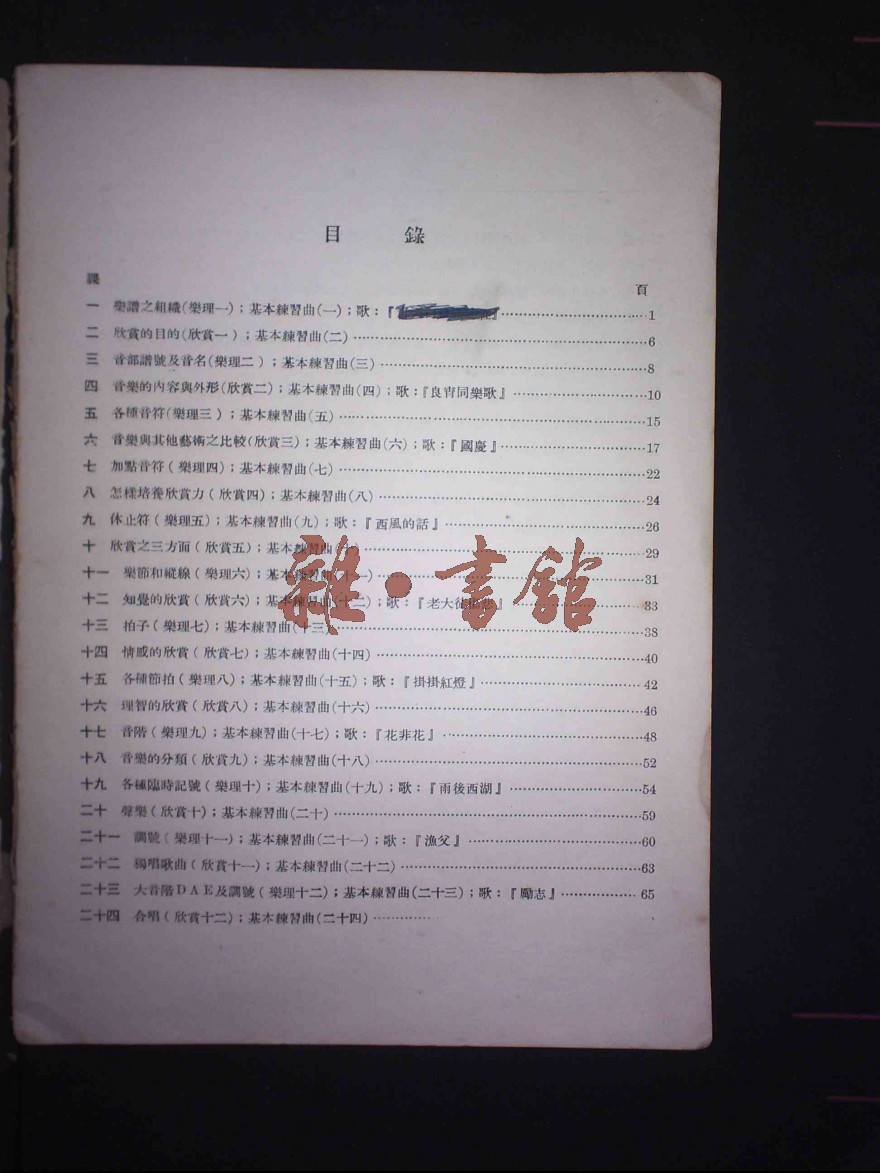 目 錄
課
頁
一 樂譜之組織(樂理一)；基本練習曲(一)；歌：『』……1
二 欣賞的目的(欣賞一)；基本練習曲(二)……6
三 音部譜號及音名(樂理二)；基本練習曲(三)……8
四 音樂的內容與外形(欣賞二)；基本練習曲(四)；歌：『良宵同樂歌』……10
五 各種音符(樂理三)；基本練習曲(五)……15
六 音樂與其他藝術之比較(欣賞三)；基本練習曲(六)；歌：『國慶』……17
七 加點音符(樂理四)；基本練習曲(七)……22
八 怎樣培養欣賞力(欣賞四)；基本練習曲(八)……24
九 休止符(樂理五)；基本練習曲(九)；歌：『西風的話』……26
十 欣賞之三方面(欣賞五)；基本練習曲(十)……29
十一 樂節和縱線(樂理六)；基本練習曲(十一)……31
十二 知覺的欣賞(欣賞六)；基本練習曲(十二)；歌：『老大徒傷悲』……33
十三 拍子(樂理七)；基本練習曲(十三)……38
十四 情感的欣賞(欣賞七)；基本練習曲(十四)……40
十五 各種節拍(樂理八)；基本練習曲(十五)；歌：『掛掛紅燈』……42
十六 理智的欣賞(欣賞八)；基本練習曲(十六)……46
十七 音階(樂理九)；基本練習曲(十七)；歌：『花非花』……48
十八 音樂的分類(欣賞九)；基本練習曲(十八)……52
十九 各種臨時記號(樂理十)；基本練習曲(十九)；歌：『雨後西湖』……54
二十 聲樂(欣賞十)；基本練習曲(二十)……59
二十一 調號(樂理十一)；基本練習曲(二十一)；歌：『漁父』……60
二十二 獨唱歌曲(欣賞十一)；基本練習曲(二十二)……63
二十三 大音階DAE及調號(樂理十二)；基本練習曲(二十三)；歌：『勵志』……65
二十四 合唱(欣賞十二)；基本練習曲(二十四)……
雜·書館